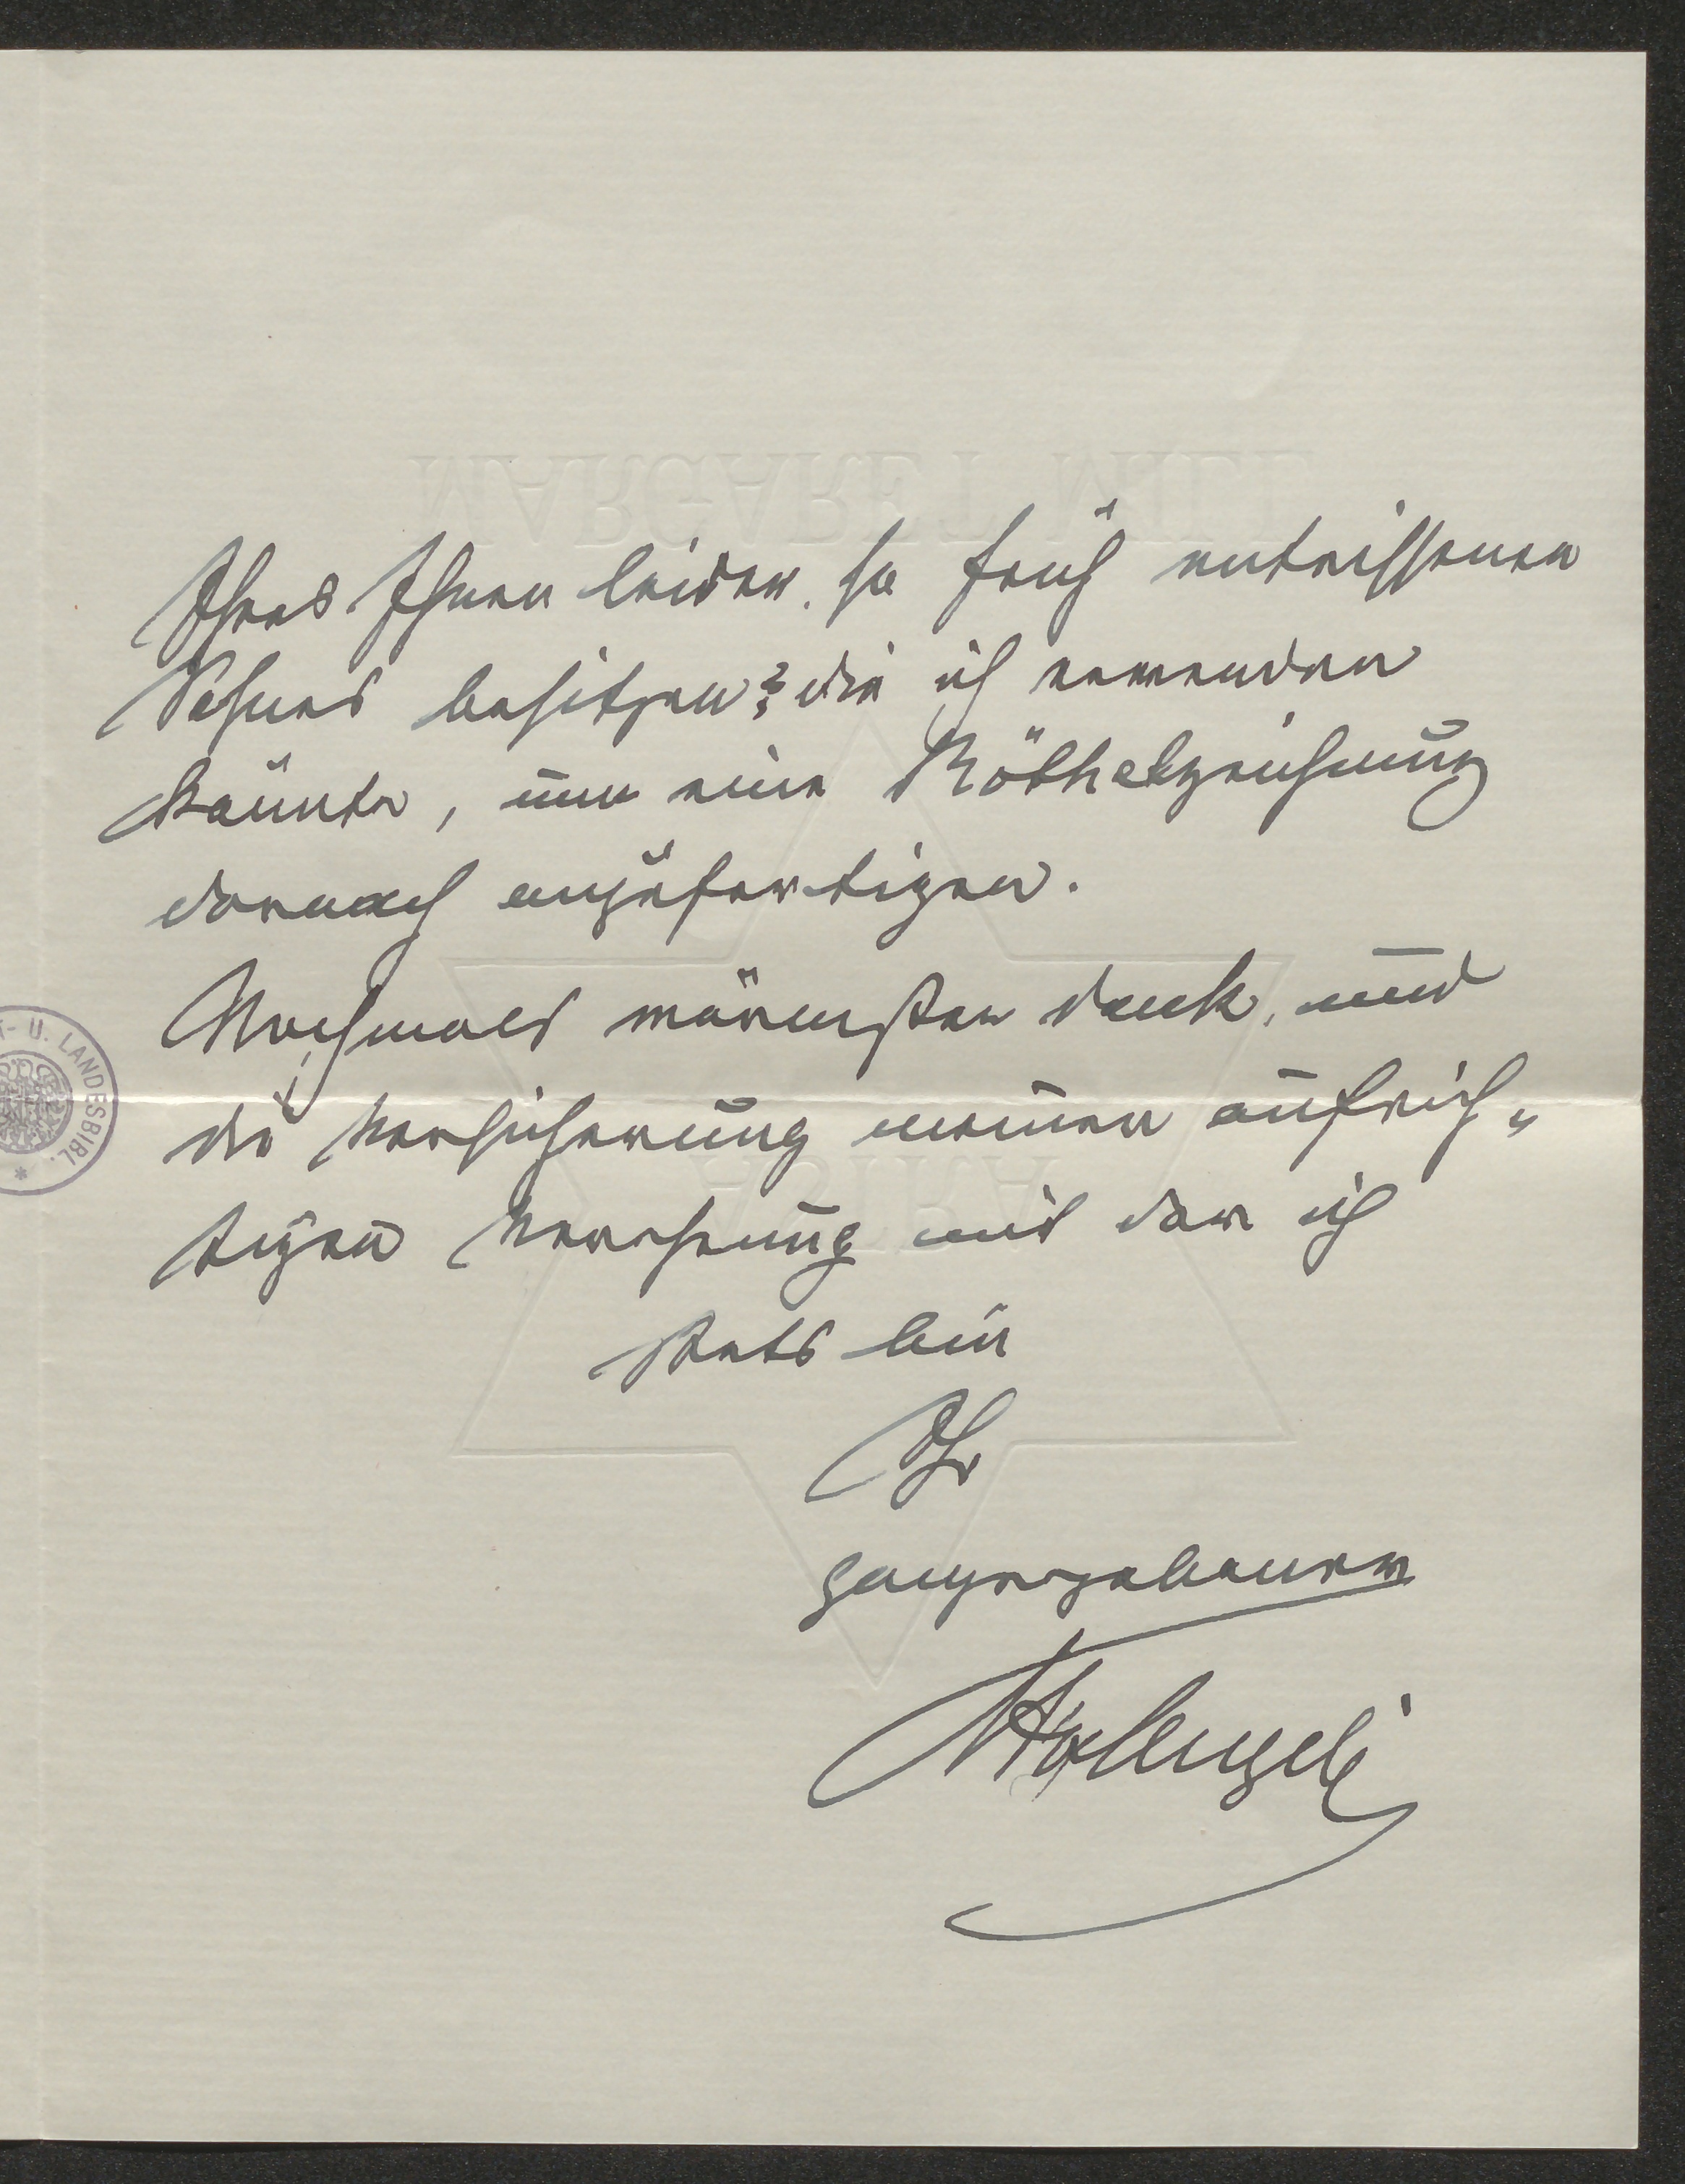 Ihres Ihnen leider so früh entrissenen
Sohnes besitzen? die ich verwenden
könnte, um eine Röthelzeichnung
darnach anzufertigen.
Nochmals wärmsten Dank, und
die Versicherung meiner aufrich„
tigen Verehrung mit der ich
stets bin
Ihr
ganz ergebener
U. LANDESBIBL.
MARGARET MILL
ASTRA